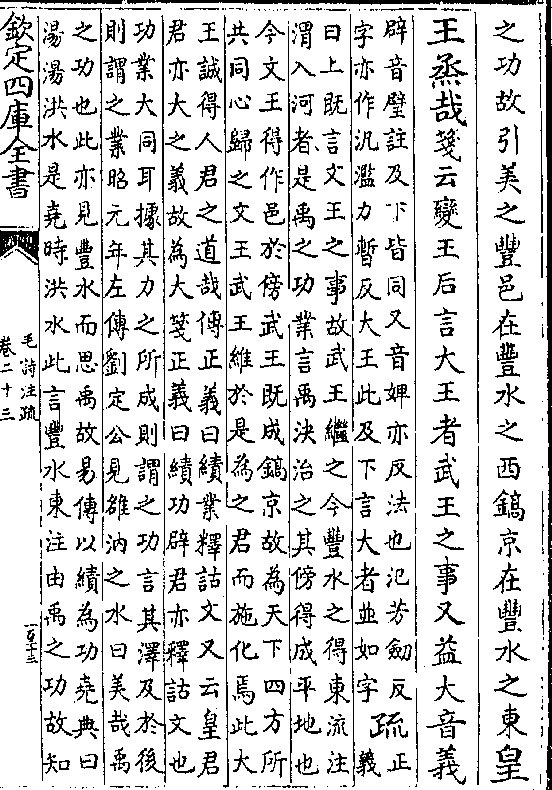 之功故引美之豐邑在豐水之西鎬京在豐水之東皇
王烝哉箋云變王后言大王者武王之事又益大音義
辟音璧註及下皆同又音婢亦反法也氾芳劒反
字亦作汎濫力暫反大王此及下言大者並如字
疏正義
曰上既言文王之事故武王繼之今豐水之得東流注
渭入河者是禹之功業言禹決治之其傍得成平地也
今文王得作邑於傍武王既成鎬京故為天下四方所
共同心歸之文王武王維於是為之君而施化焉此大
王誠得人君之道哉傳正義曰績業釋詁文又云皇君
君亦大之義故為大箋正義曰績功辟君亦釋詁文也
功業大同耳據其力之所成則謂之功言其澤及於後
則謂之業昭元年左傳劉定公見雒汭之水曰美哉禹
之功也此亦見豐水而思禹故易傳以績為功堯典曰
湯湯洪水是堯時洪水此言豐水東注由禹之功故知
欽定四庫全書
毛詩注疏
卷二十三